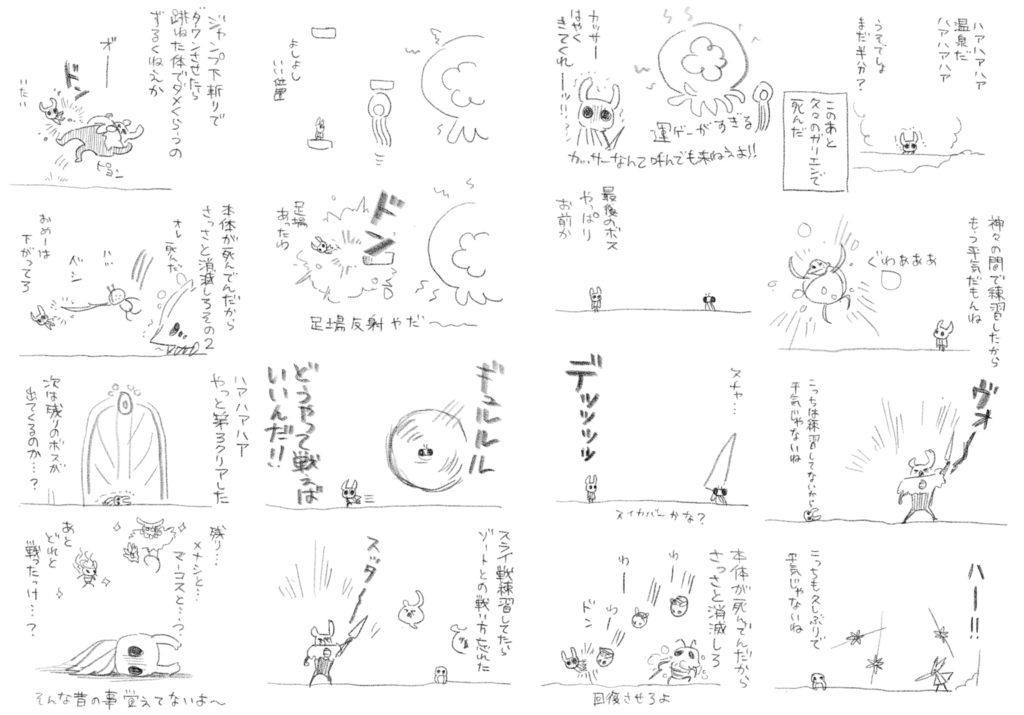 ハァハァハァ
温泉だ
ハァハァハァ
うそでしょ
まだ半分?
このあと
久々のガリエンで
死んだ
神々の間で練習したから
もう平気だもんね
ぐわぁぁぁ
ヴォ
こっちは練習してないから
平気じゃないね
ハー!!
こっちも久しぶりで
平気じゃないね
カッサー
はやく
きてくれ
ーーッ!!?
運ゲーがすぎる
カッサーなんて呼んでも来ねえよ!!
最後のボス
やっぱり
お前か
スチャ…
デッッッッ
スイカバーかな?
わー
わー
わー
本体が死んでんだから
さっさと消滅しろ
ドン
回復させろよ
よしよし
いい位置
ドン
足場
あったわ
足場反射やだ〜
ギュルルル
どうやって戦えば
いいんだ!!
スライ戦練習してたら
ゾートとの戦い方忘れた
スッター
ジャンプ下斬りで
ダウンさせたら
跳ねた体でダメくらうの
ずるくねえか
ボー
ドン
いたい
ピョン
本体が死んでんだから
さっさと消滅しろその2
オレ
死んだ
ハッ
ベシ
おめーは
下がってろ
ハァハァハァ
やっと第3クリアした
次は残りのボスが
出てくるのか…?
残り…
メナシと…
マーコスと…っ?
あと
どれと
戦ったっけ…?
そんな昔の事覚えてないよ〜